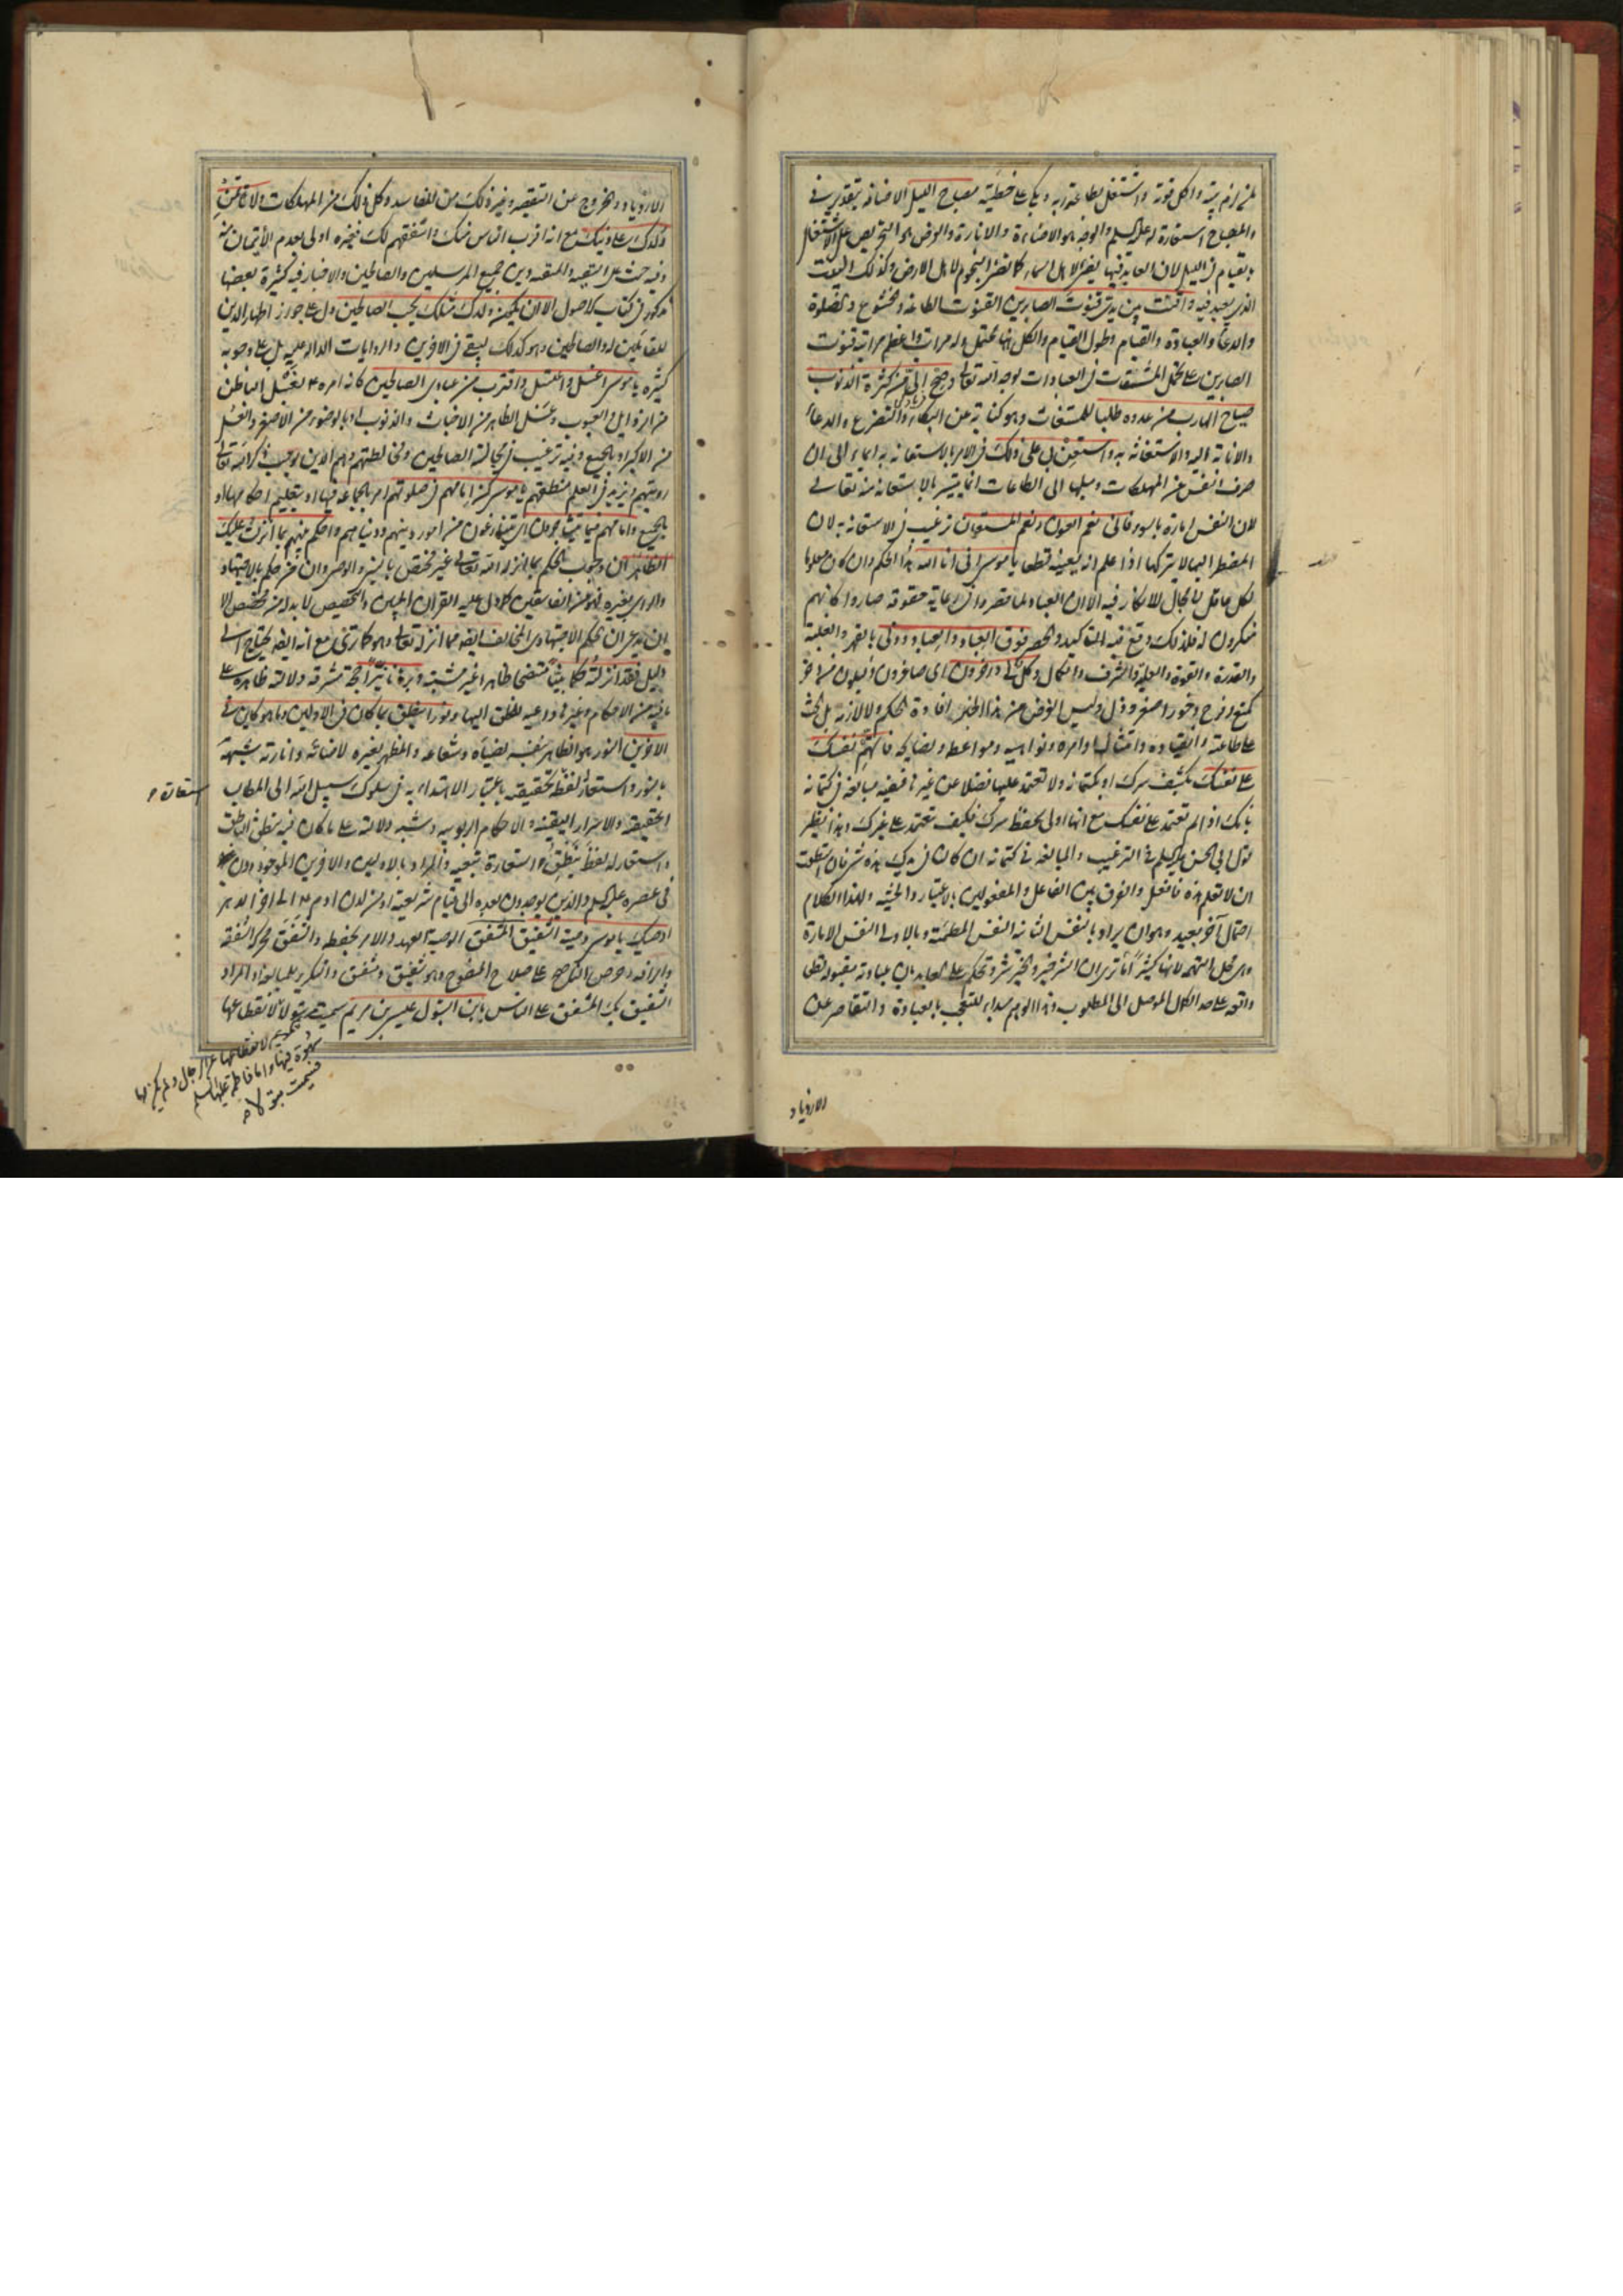 لمن لزم بيته واكل قوته واشتغل بطاعة ربه وبكى على خطيته مصباح الليل الاضافة بتقدير في
والمصباح استعارة له عليه السلم والوجه هو الاضاءة والانارة والغرض هو التحريص على الاشتغال
بالقيام في الليل لان العابد فيها يضئ لاهل السماء كما تضئ النجوم لاهل الارض وكذلك البيت
الذي يعبد فيه واقنت بين يدي قنوت الصابرين القنوت الطاعة والخشوع والصلوة
والدعاء والعبادة والقيام وطول القيام والكل هنا محتمل وله مراتب واعظم مراتبه قنوت
الصابرين على تحمل المشقات في العبادات لوجه الله تعالى وصح الي من كثرة الذنوب
صياح الهارب من عدوه طلبا للمستغاث وهو كناية عن البكاء والتضرع والدعاء
والانابة اليه والاستغاثة به واستعن بي على ذلك في الامر بالاستعانة به ايماء الى ان
صرف النفس عن المهلكات وميلها الى الطاعات انما يتيسر بالاستعانة منه تعالى
لان النفس امارة بالسوء فاني نعم العون ونعم المستعان ترغيب في الاستعانة به لان
المضطر اليها لا يتركها اذا علم انه يعينه قطعا يا موسى اني انا الله هذا الحكم وان كان معلوما
لكل عاقل لا مجال للانكار فيه الا ان العباد لما قصروا في رعاية حقوقه صاروا كانهم
منكرون له فلذلك وقع فيه التاكيد والحصر فوق العباد والعباد دوني بالقهر والغلبة
والقدرة والقوة والعلية والشرف والكمال وكل لي داخرون اي صاغرون ذليلون من دخر
كمنع وفرح دخورا صغر وذل وليس الغرض من هذا الخبر افادة الحكم ولا لازمه بل الحث
على طاعته وانقياده وامتثال اوامره ونواهيه ومواعظه ونصايحه فاتهم نفسك
على نفسك بكشف سرك او بكتمانه ولا تعتمد عليها فضلا عن غيرها ففيه مبالغة في كتمانه
بانك اذا لم تعتمد على نفسك مع انها اولى بحفظ سرك فكيف تعتمد على غيرك وهذا نظير
قول ابي الحسن عليه السلم في الترغيب والمبالغة في كتمانه ان كان في يدك هذه شئ فان استطعت
ان لا تعلم هذه فافعل والفرق بين الفاعل والمفعولين بالاعتبار والحيثية ولهذا الكلام
احتمال آخر بعيد وهو ان يراد بالنفس الثانية النفس المطمئنة وبالاولى النفس الامارة
وهي محل التهمة لانها كثيرا ما تري ان الشر خير والخير شر وتحكم على العابد بان عبادته مقبولة قطعا
وانه على حد الكمال الموصل الى المطلوب وهذا الوهم مبداء للتعجب بالعبادة والتقاصر عن
الازدياد
الازدياد والخروج عن التقصير وغير ذلك من المفاسد وكل ذلك من المهلكات ولا تاتمن
ولدك على دينك مع انه اقرب الناس منك واشفقهم لك فغيره اولى بعدم الايتمان منه
وفيه حث على التقية والتقية دين جميع المرسلين والصالحين والاخبار فيه كثيرة بعضها
مذكور في كتاب الاصول الا ان يكون ولدك مثلك يحب الصالحين دل على جواز اظهار الدين
للقابلين له والصالحين وهو كذلك ليبقي في الآخرين والروايات الدالة عليه بل على وجوبه
كثيرة يا موسى اغسل واغتسل واقترب من عبادي الصالحين كانه امره بغسل الباطن
من الرذايل والعيوب وغسل الظاهر من الاخباث والذنوب او بالوضوء من الاصغر والغسل
من الاكبر او بالجميع وفيه ترغيب في مجالسة الصالحين ومخالطتهم وهم الذين يوجب ذكر الله تعالى
رؤيتهم ويزيد في العلم منطقهم يا موسى كن امامهم في صلوتهم امر بالجماعة فيها او بتعليم احكامها او
بالجميع وامامهم فيما يتشاجرون اي يتنازعون من امور دينهم ودنياهم واحكم بينهم بما انزلت عليك
الظاهر ان وجوب الحكم بما انزله الله تعالى غير مختص بالنبي والوصي وان من حكم بالاجتهاد
والراي بغيره فهو من الفاسقين كما دل عليه القران المبين والتخصيص لا بد له من مخصص الا
ان يدعى ان الحكم الاجتهادي المخالف ايضا مما انزله تعالى وهو كما ترى مع انه ايضا يحتاج الى
دليل فقد انزلته حكما بينا متضحا ظاهرا غير مشتبه وبرهانا نيرا حجة مشرقة دلالته ظاهرة على
ما فيه من الاحكام وغيرها داعية للخلق اليها ونورا ينطق بما كان في الاولين وبما هو كاين في
الاخرين النور هو الظاهر بنفسه بضيائه وشعاعه والمظهر لغيره لاضائته وانارته شبهه
بالنور واستعار لفظه تحقيقية باعتبار الاهتداء به في سلوك سبيل الله الى المطالب
الحقيقية والاسرار اليقينية والاحكام الربوبية وشبه دلالته على ما كان فيه بنطق الناطق
واستعار له لفظ ينطق استعارة تبعية والمراد بالاولين والاخرين الموجودون
في عصره عليه السلم والذين يوجدون بعده الى قيام شريعته او من لدن ادم الى اخر الدهر
اوصيك يا موسى وصية الشفيق المشفق الوصية العهد والامر بحفظه والشفق محركة الشفقة
والرافة وحرص الناصح على صلاح المنصوح وهو شفيق ومشفق والتكرير للمبالغة او المراد
الشفيق بك المشفق على الناس بابن البتول عيسى بن مريم سميت بتولا لانقطاعها
استعارة
مريم لانقطاعها عن الرجال ولم يكن لها
شهوة فيها واما فاطمة عليها السلم
فسميت بتولا